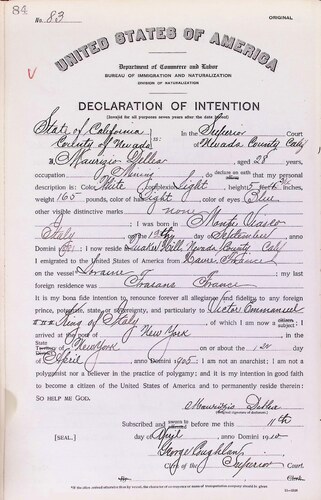 84
No. 83
ORIGINAL
UNITED STATES OF AMERICA
Department of Commerce and Labor
BUREAU OF IMMIGRATION AND NATURALIZATION
DIVISION OF NATURALIZATION
DECLARATION OF INTENTION
(Invalid for all purposes seven years after the date hereof)
State of California
County of Nevada ss: In the Superior Court
of Nevada County Calif
I, Maurizio aged 28 years,
occupation Mining, do declare on oath that my personal
description is: Color White, complexion Light, height 5 feet inches,
weight 165 pounds, color of hair Light, color of eyes Blue,
other visible distinctive marks none
I was born in
Italy on the 13th day of September, anno
Domini 1881; I now reside Quaker Hill, Nevada County Cal
I emigrated to the United States of America from Havre, France
on the vessel Loraine; my last
foreign residence was France
It is my bona fide intention to renounce forever all allegiance and fidelity to any foreign
prince, potentate, state, or sovereignty, and particularly to Victor Emmanuel
King of Italy, of which I am now a subject; I
arrived at the port of New York, in the
State of New York on or about the 12 day
of April, anno Domini 1905; I am not an anarchist; I am not a
polygamist nor a believer in the practice of polygamy; and it is my intention in good faith
to become a citizen of the United States of America and to permanently reside therein:
SO HELP ME GOD.
Maurizio
Subscribed and sworn to before me this 11th
[SEAL.] day of April, anno Domini 1910
George Coughlan
Clerk of the Superior Court.